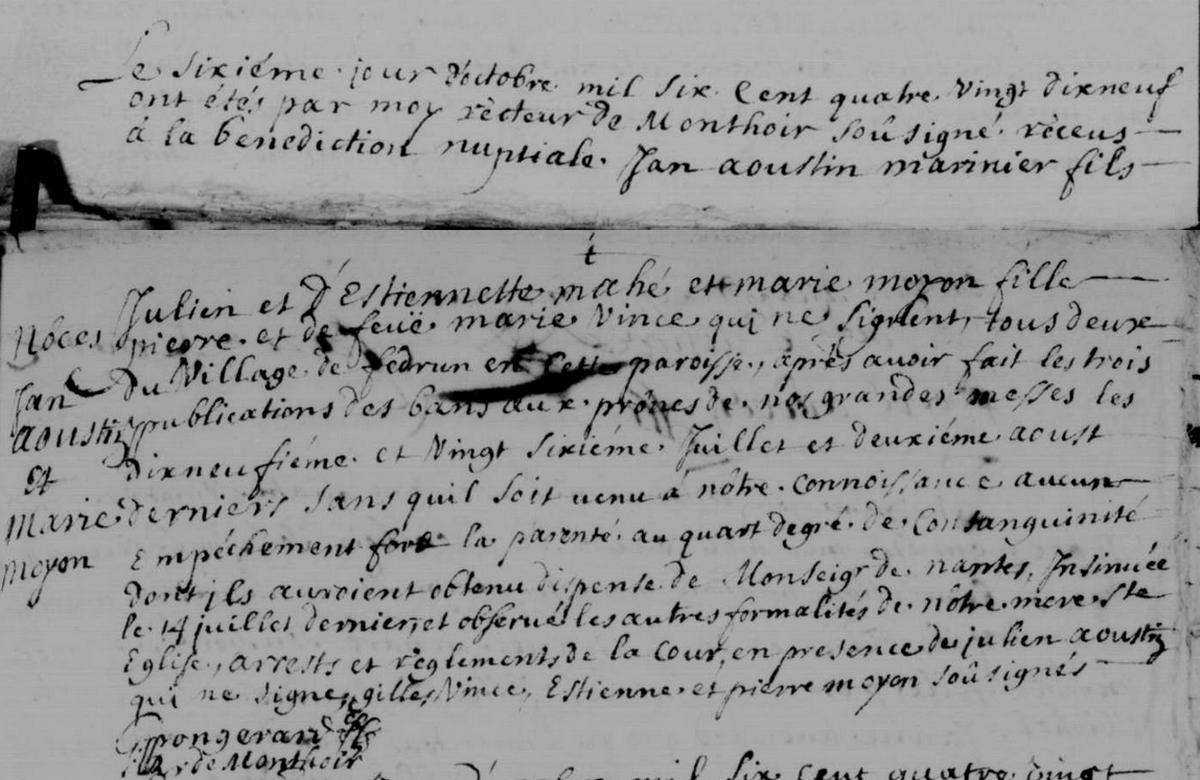 Le sixiéme jour d'octobre mil six Cent quatre Vingt dixneuf
ont étés par moy récteur de Monthoir soûsigné réceus
á la bénédiction nuptiale. Jan aoustin marinier fils
Julien et D'Estiennette mahé et marie moyon fille
pierre et de feuë marie Vince qui ne signent, tous deux
Du Village de fédrun en Cette paroisse, aprés avoir fait les trois
publications des bans aux prônes de nos grandes messes les
dixneufiéme et Vingt sixiéme Juillet et deuxiéme aoust
derniers sans quil soit venu á nôtre connoissance aucun
Empéchement fors la parenté au quart degré de Consanguinité
Dont jls auroient obtenu dispense de Monseigr de nantes, Insinuée
le 14 juillet dernier, et observé les autres formalités de nôtre mere Ste
Eglise, arrests et réglements de la Cour, en presence de julien aoustin
qui ne signe, gilles Vince, Estienne et pierre moyon soûsignés
Nôces
Jan
aoustin
et
Marie
moyon
pongerard
de Monthoir
mil six cent quatre vingt